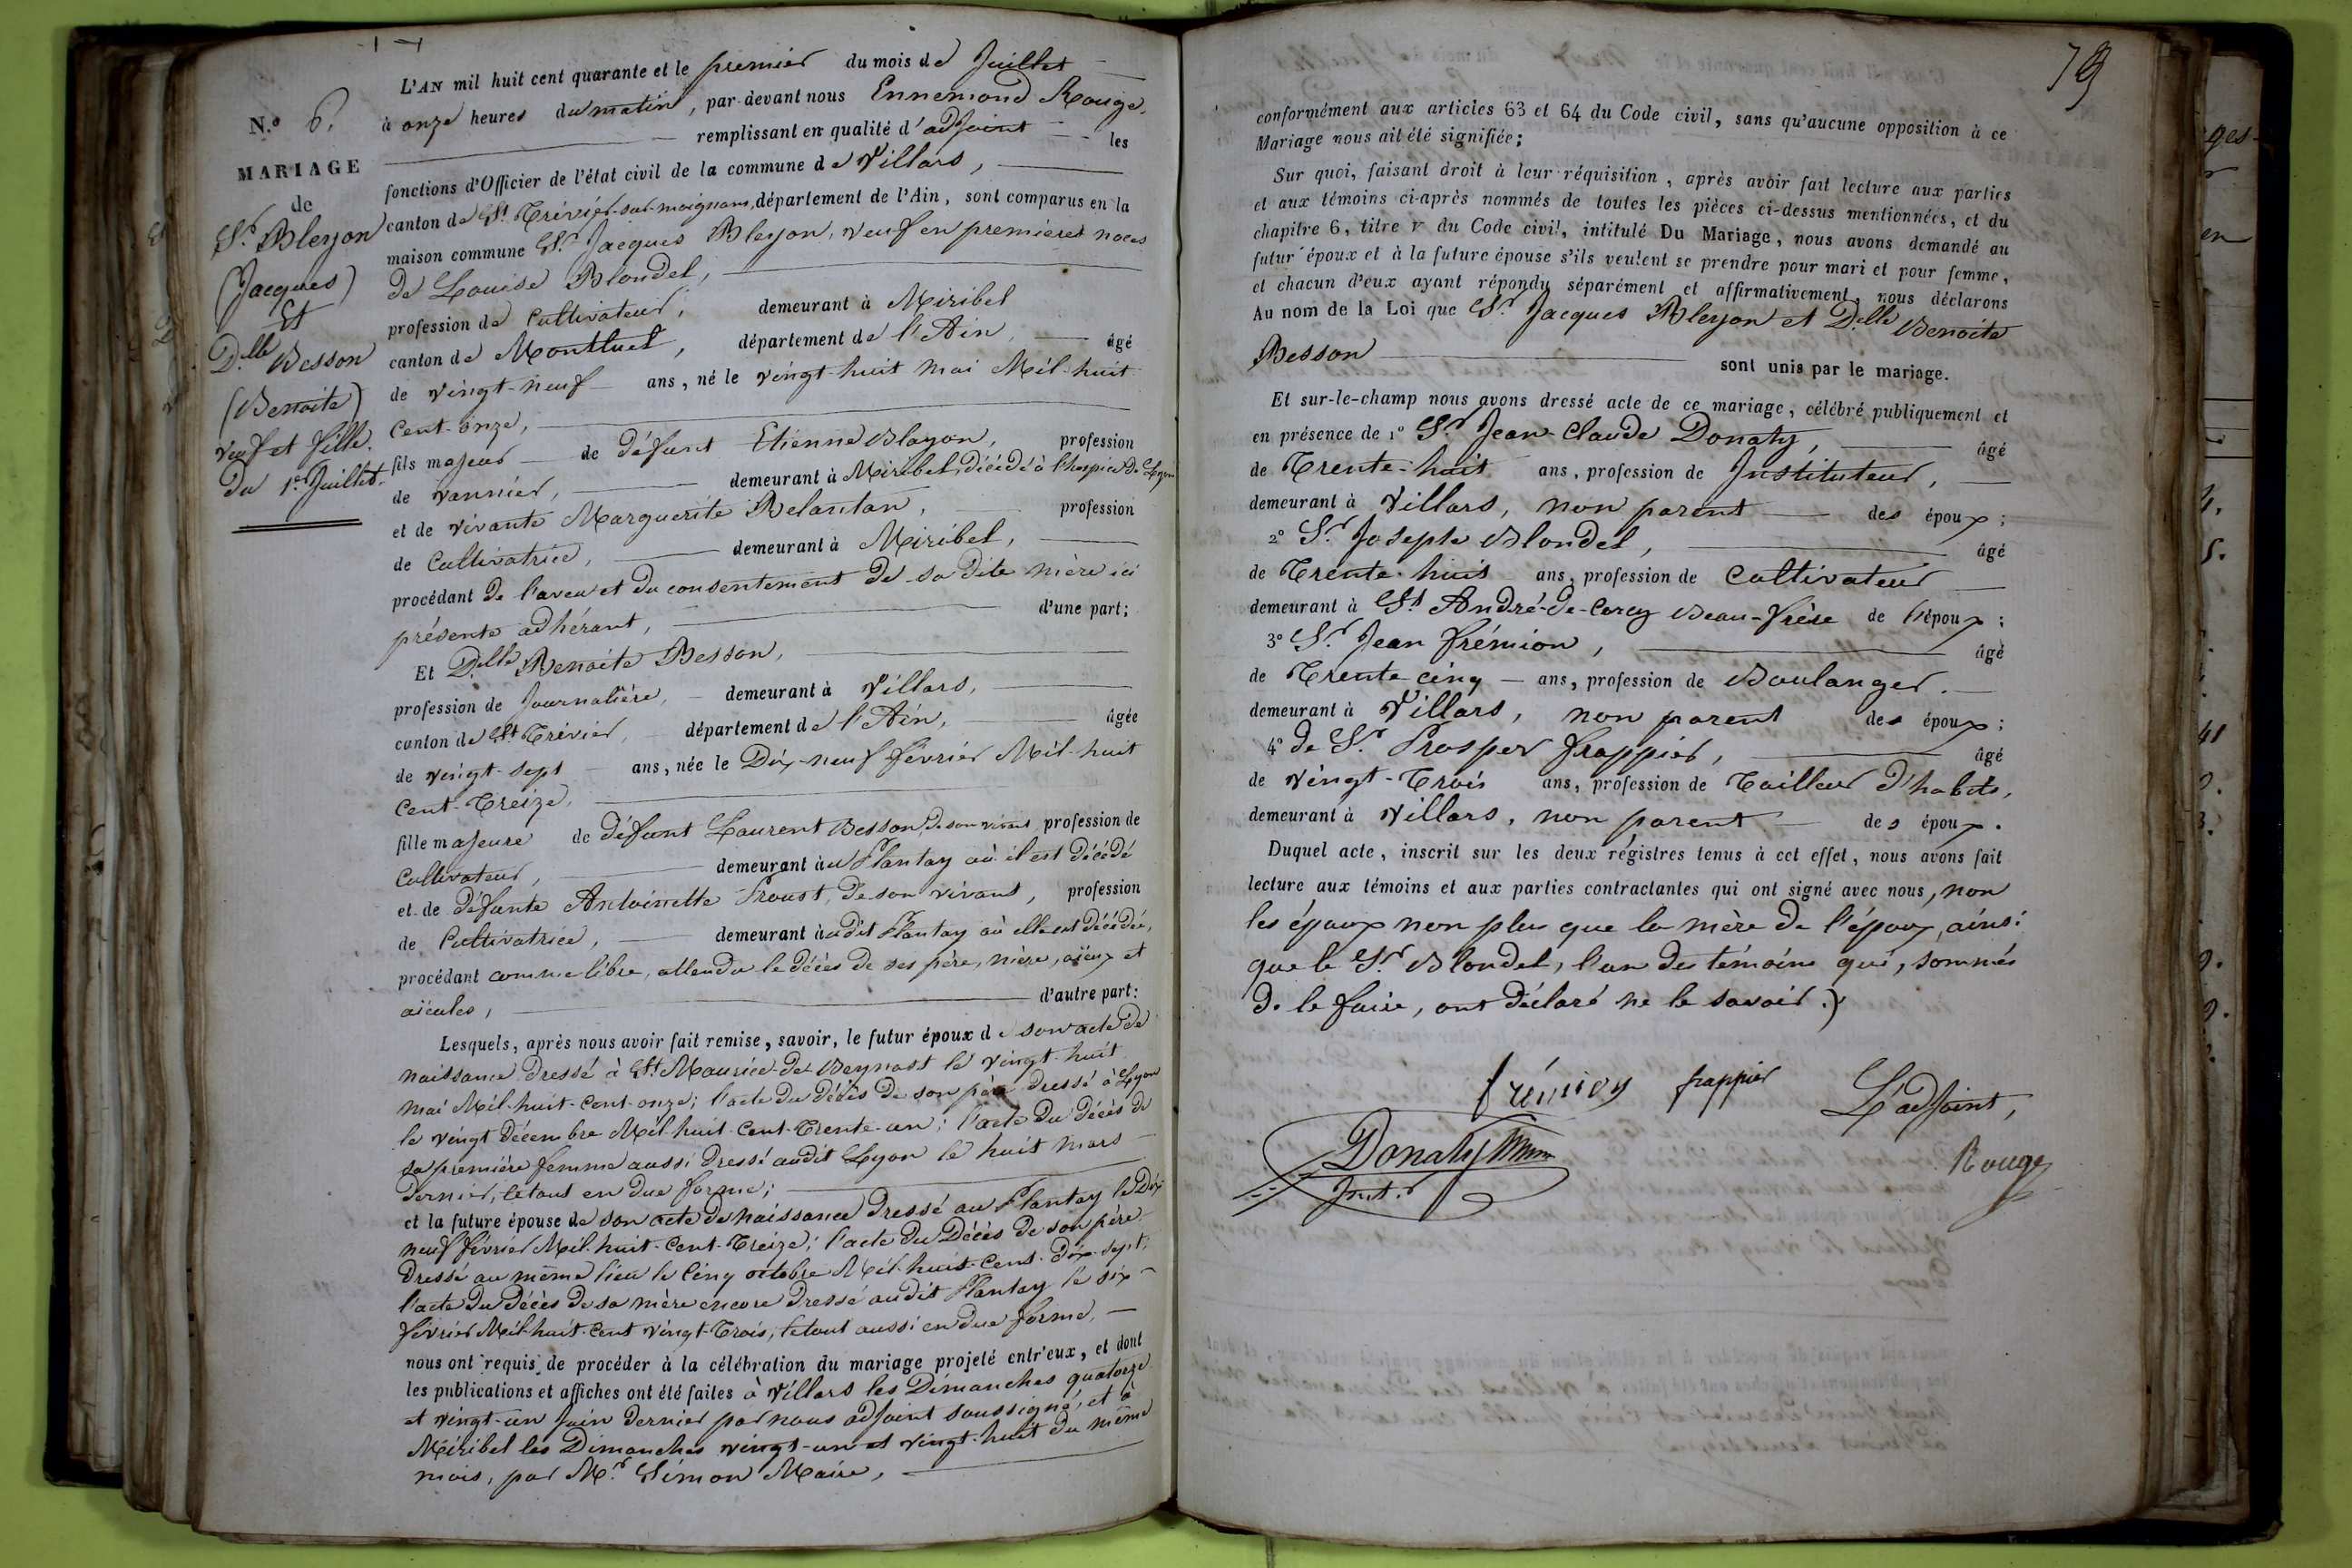 N.º 6.
MARIAGE
de
Sr. Bleyon
(Jacques)
Et
D.lle Besson
(Benoite)
veuf et fille.
Du 1er Juillet.
L'AN mil huit cent quarante et le premier du mois de Juillet
à onze heures du matin, par-devant nous Ennemond Rouge,
remplissant en qualité d'adjoint les
fonctions d'Officier de l'état civil de la commune de Villars,
canton de St. Trivier-sur-moignans, département de l'Ain, sont comparus en la
maison commune Sr. Jacques Bleyon, veuf en premières noces
de Louise Blondel,
profession de Cultivateur, demeurant à Miribel
canton de Montluel, département de l'Ain, âgé
de vingt-neuf ans, né le vingt-huit mai Mil-huit
Cent-onze,
fils majeur de défunt Etienne Blayon, profession
de vannier, demeurant à Miribel, décédé à l'hospice de Lyon
et de vivante Marguerite Belantan, profession
de Cultivatrice, demeurant à Miribel,
procédant de l'aveu et du consentement de sa dite mère ici
présente adhérant, d'une part;
Et D.lle Benoite Besson,
profession de Journalière, demeurant à Villars,
canton de St Trivier, département de l'Ain, âgée
de vingt-sept ans, née le Dix-neuf février Mil-huit
Cent-Treize,
fille majeure de défunt Laurent Besson, de son vivant profession de
Cultivateur, demeurant au Plantay où il est décédé
et de défunte Antoinette Proust, de son vivant, profession
de Cultivatrice, demeurant audit Plantay où elle est décédée,
procédant comme libre, attendu le décès de ses père, mère, aïeux et
aïeules, d'autre part:
Lesquels, après nous avoir fait remise, savoir, le futur époux de son acte de
naissance dressé à St. Maurice-de-Beynost le vingt-huit
mai Mil-huit-Cent-onze; l'acte du décès de son père dressé à Lyon
le vingt décembre Mil-huit-Cent-Trente-un; l'acte du décès de
sa première femme aussi dressé audit Lyon le huit mars
dernier, le tout en due forme;
et la future épouse de son acte de naissance dressé au Plantay le Dix
neuf février Mil-huit-Cent-Treize; l'acte du Décès de son père
Dressé au même lieu le Cinq octobre Mil-huit-Cent-Dix-sept;
l'acte du Décès de sa mère encore dressé audit Plantay le six
février Mil-huit-Cent vingt-Trois; le tout aussi en due forme,
nous ont requis de procéder à la célébration du mariage projeté entr'eux, et dont
les publications et affiches ont été faites à Villars les Dimanches quatorze
et vingt-un Juin dernier par nous adjoint soussigné, et à
Miribel les Dimanches vingt-un et vingt-huit du même
mois, par Mr. Simon Maire,
79
conformément aux articles 63 et 64 du Code civil, sans qu'aucune opposition à ce
Mariage nous ait été signifiée;
Sur quoi, faisant droit à leur réquisition, après avoir fait lecture aux parties
et aux témoins ci-après nommés de toutes les pièces ci-dessus mentionnées, et du
chapitre 6, titre V du Code civil, intitulé Du Mariage, nous avons demandé au
futur époux et à la future épouse s'ils veulent se prendre pour mari et pour femme,
et chacun d'eux ayant répondu séparément et affirmativement, nous déclarons
Au nom de la Loi que Sr. Jacques Bleyon et D.lle Benoite
Besson sont unis par le mariage.
Et sur-le-champ nous avons dressé acte de ce mariage, célébré publiquement et
en présence de 1º Sr. Jean-Claude Donaty, âgé
de Trente-huit ans, profession de Instituteur,
demeurant à Villars, non parent des époux;
2º Sr. Joseph Blondel, âgé
de Trente-huit ans, profession de Cultivateur
demeurant à St. André-de-Corcy Beau-frère de l'époux;
3º Sr. Jean frémion, âgé
de Trente cinq ans, profession de Boulanger.
demeurant à Villars, non parent des époux;
4º de Sr. Prosper frappier, âgé
de vingt-Trois ans, profession de Tailleur d'habits,
demeurant à Villars, non parent des époux.
Duquel acte, inscrit sur les deux régistres tenus à cet effet, nous avons fait
lecture aux témoins et aux parties contractantes qui ont signé avec nous, non
les époux non plus que la mère de l'époux, ainsi
que le Sr. Blondel, l'un des témoins qui, sommés
de le faire, ont déclaré ne le savoir.
frémion frappier L'adjoint,
Donaty
Inst.r
Rouge